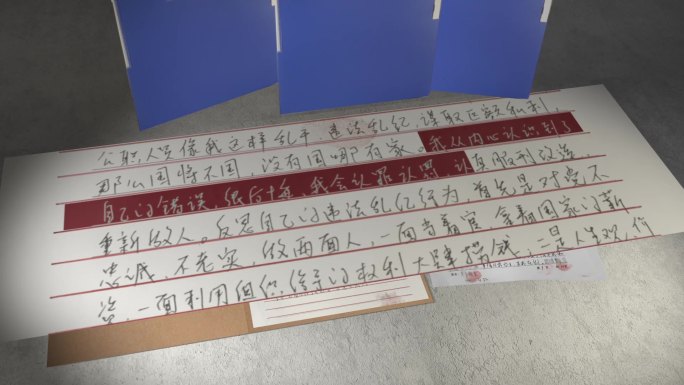 公职人员像我这样乱干，违法乱纪，谋取巨额私利，
那么国将不国，没有国哪有家。我从内心认识到了
自己的错误，很后悔，我会认罪认罚，认真服刑改造，
重新做人。反思自己的违法乱纪行为，首先是对党不
忠诚，不老实，做两面人，一面当着官，拿着国家的薪
资，一面利用组织给予的权利大肆捞钱，二是人生观，价